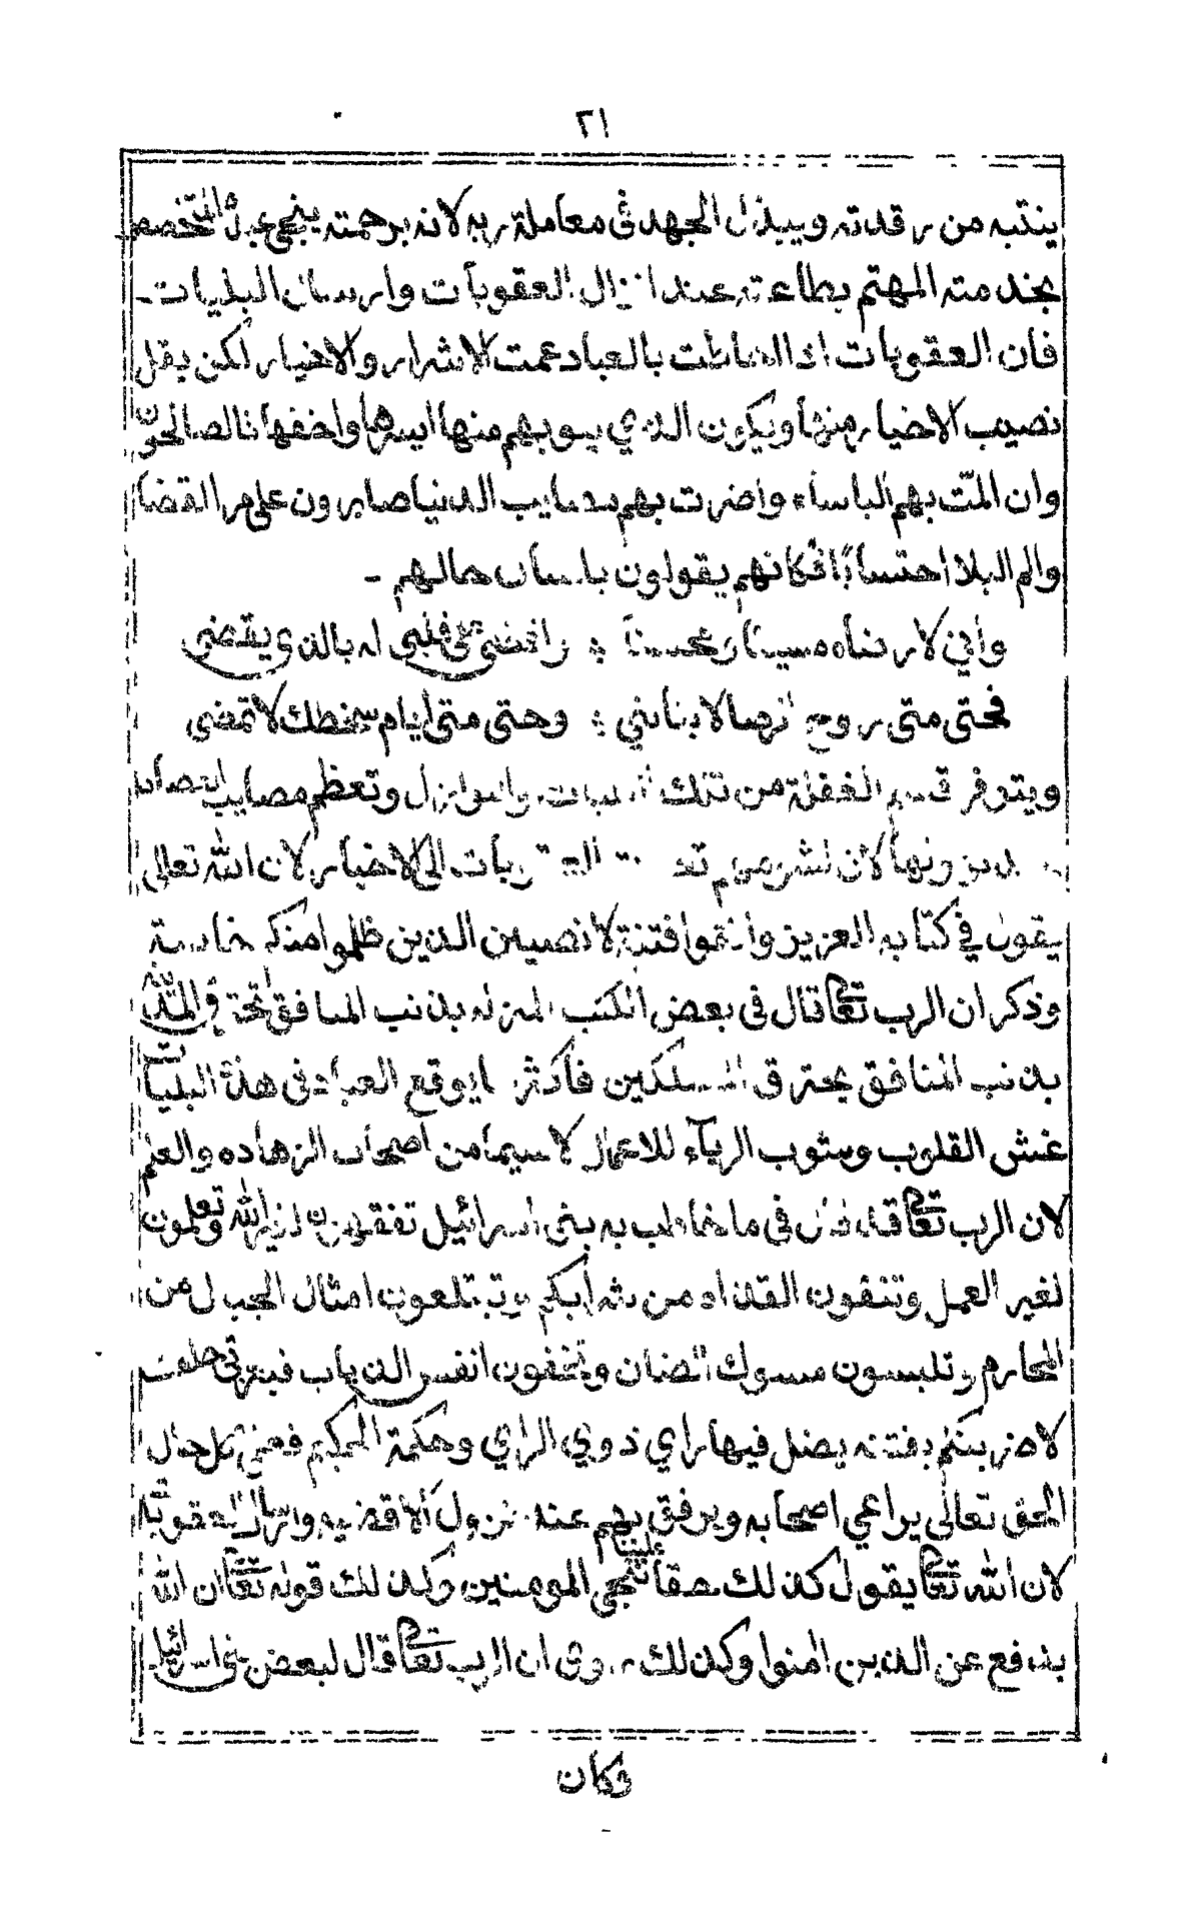 ٢١
ينتبه من رقدته ويبذل الجهد فى معاملة ربه لانه برحمته ينجى عبده المتخصص
بخدمته المهتم بطاعته عند انزال العقوبات وارسال البليات
فان العقوبات اذا انزلت بالعباد عمت الاشرار والاخيار لكن يقل
نصيب الاخيار منها ويكون الذي ينوبهم منها ايسرها واخفها فالصالحون
وان المّت بهم الباساء واضرت بهم مصايب الدنيا صابرون على مر القضا
والم البلا احتسابًا فكانهم يقولون بلسان حالهم -
واني لارضاه مسيئا ومحسنا ؛ وافضى على قلبي له بالذي يقضى
فحتى متى روح الرضا لا ينالني ؛ وحتى متى ايام سخطك لا تمضى
ويتوفر قسم الغفلة من تلك والنوازل وتعظم مصايب
لان الله تعالى
يقول في كتابه العزيز واتقوا فتنة لا تصيبن الذين ظلموا منكم خاصة
وذكر ان الرب تعالى قال فى بعض الكتب المنزله بذنب المنافق
بذنب المنافق يحترق المسلكين فاكثر ما يوقع العباد فى هذه البليات
غش القلوب وشوب الرياء للاعمال لا سيما من اصحاب الزهاده والعلم
لان الرب تعالى قد قال فى ما خاطب به بنى اسرائيل تفقهون لغير الله وتعلمون
لغير العمل وتنقون القذاه من شرابكم وتبتلعون امثال الجبل من
المحارم وتلبسون مسوك الضان وتخفون انفس الذياب فبعزتى حلفت
لاضربنكم بفتنه يضل فيها راي ذوي الراي وحكمة الحكيم فعلى كل حال
الحق تعالى يراعي اصحابه ويرفق بهم عند نزول الاقضيه وارسال العقوبه
لان الله تعالى يقول كذلك حقا علينا ننجى المومنين وكذلك قوله تعالى ان الله
يدفع عن الذين امنوا وكذلك روى ان الرب تعالى قال لبعض بنى اسرائيل
وكان